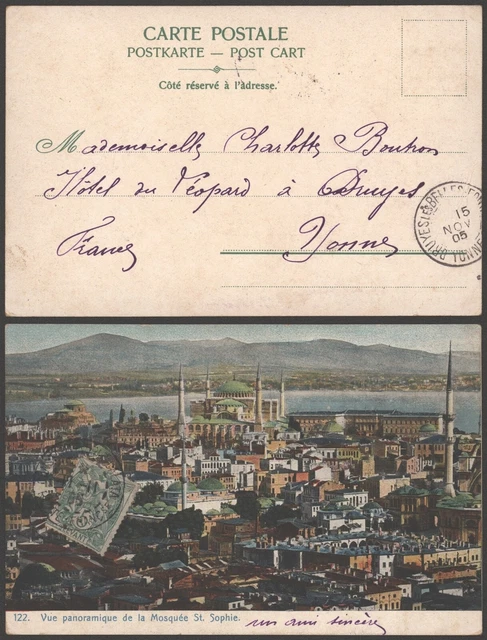 CARTE POSTALE
POSTKARTE — POST CART
Côté réservé à l'adresse.
Mademoiselle Charlotte Bouhon
Hôtel du Léopard à Druyes
Yonne
France
15
NOV
05
122. Vue panoramique de la Mosquée St. Sophie.
un ami sincère